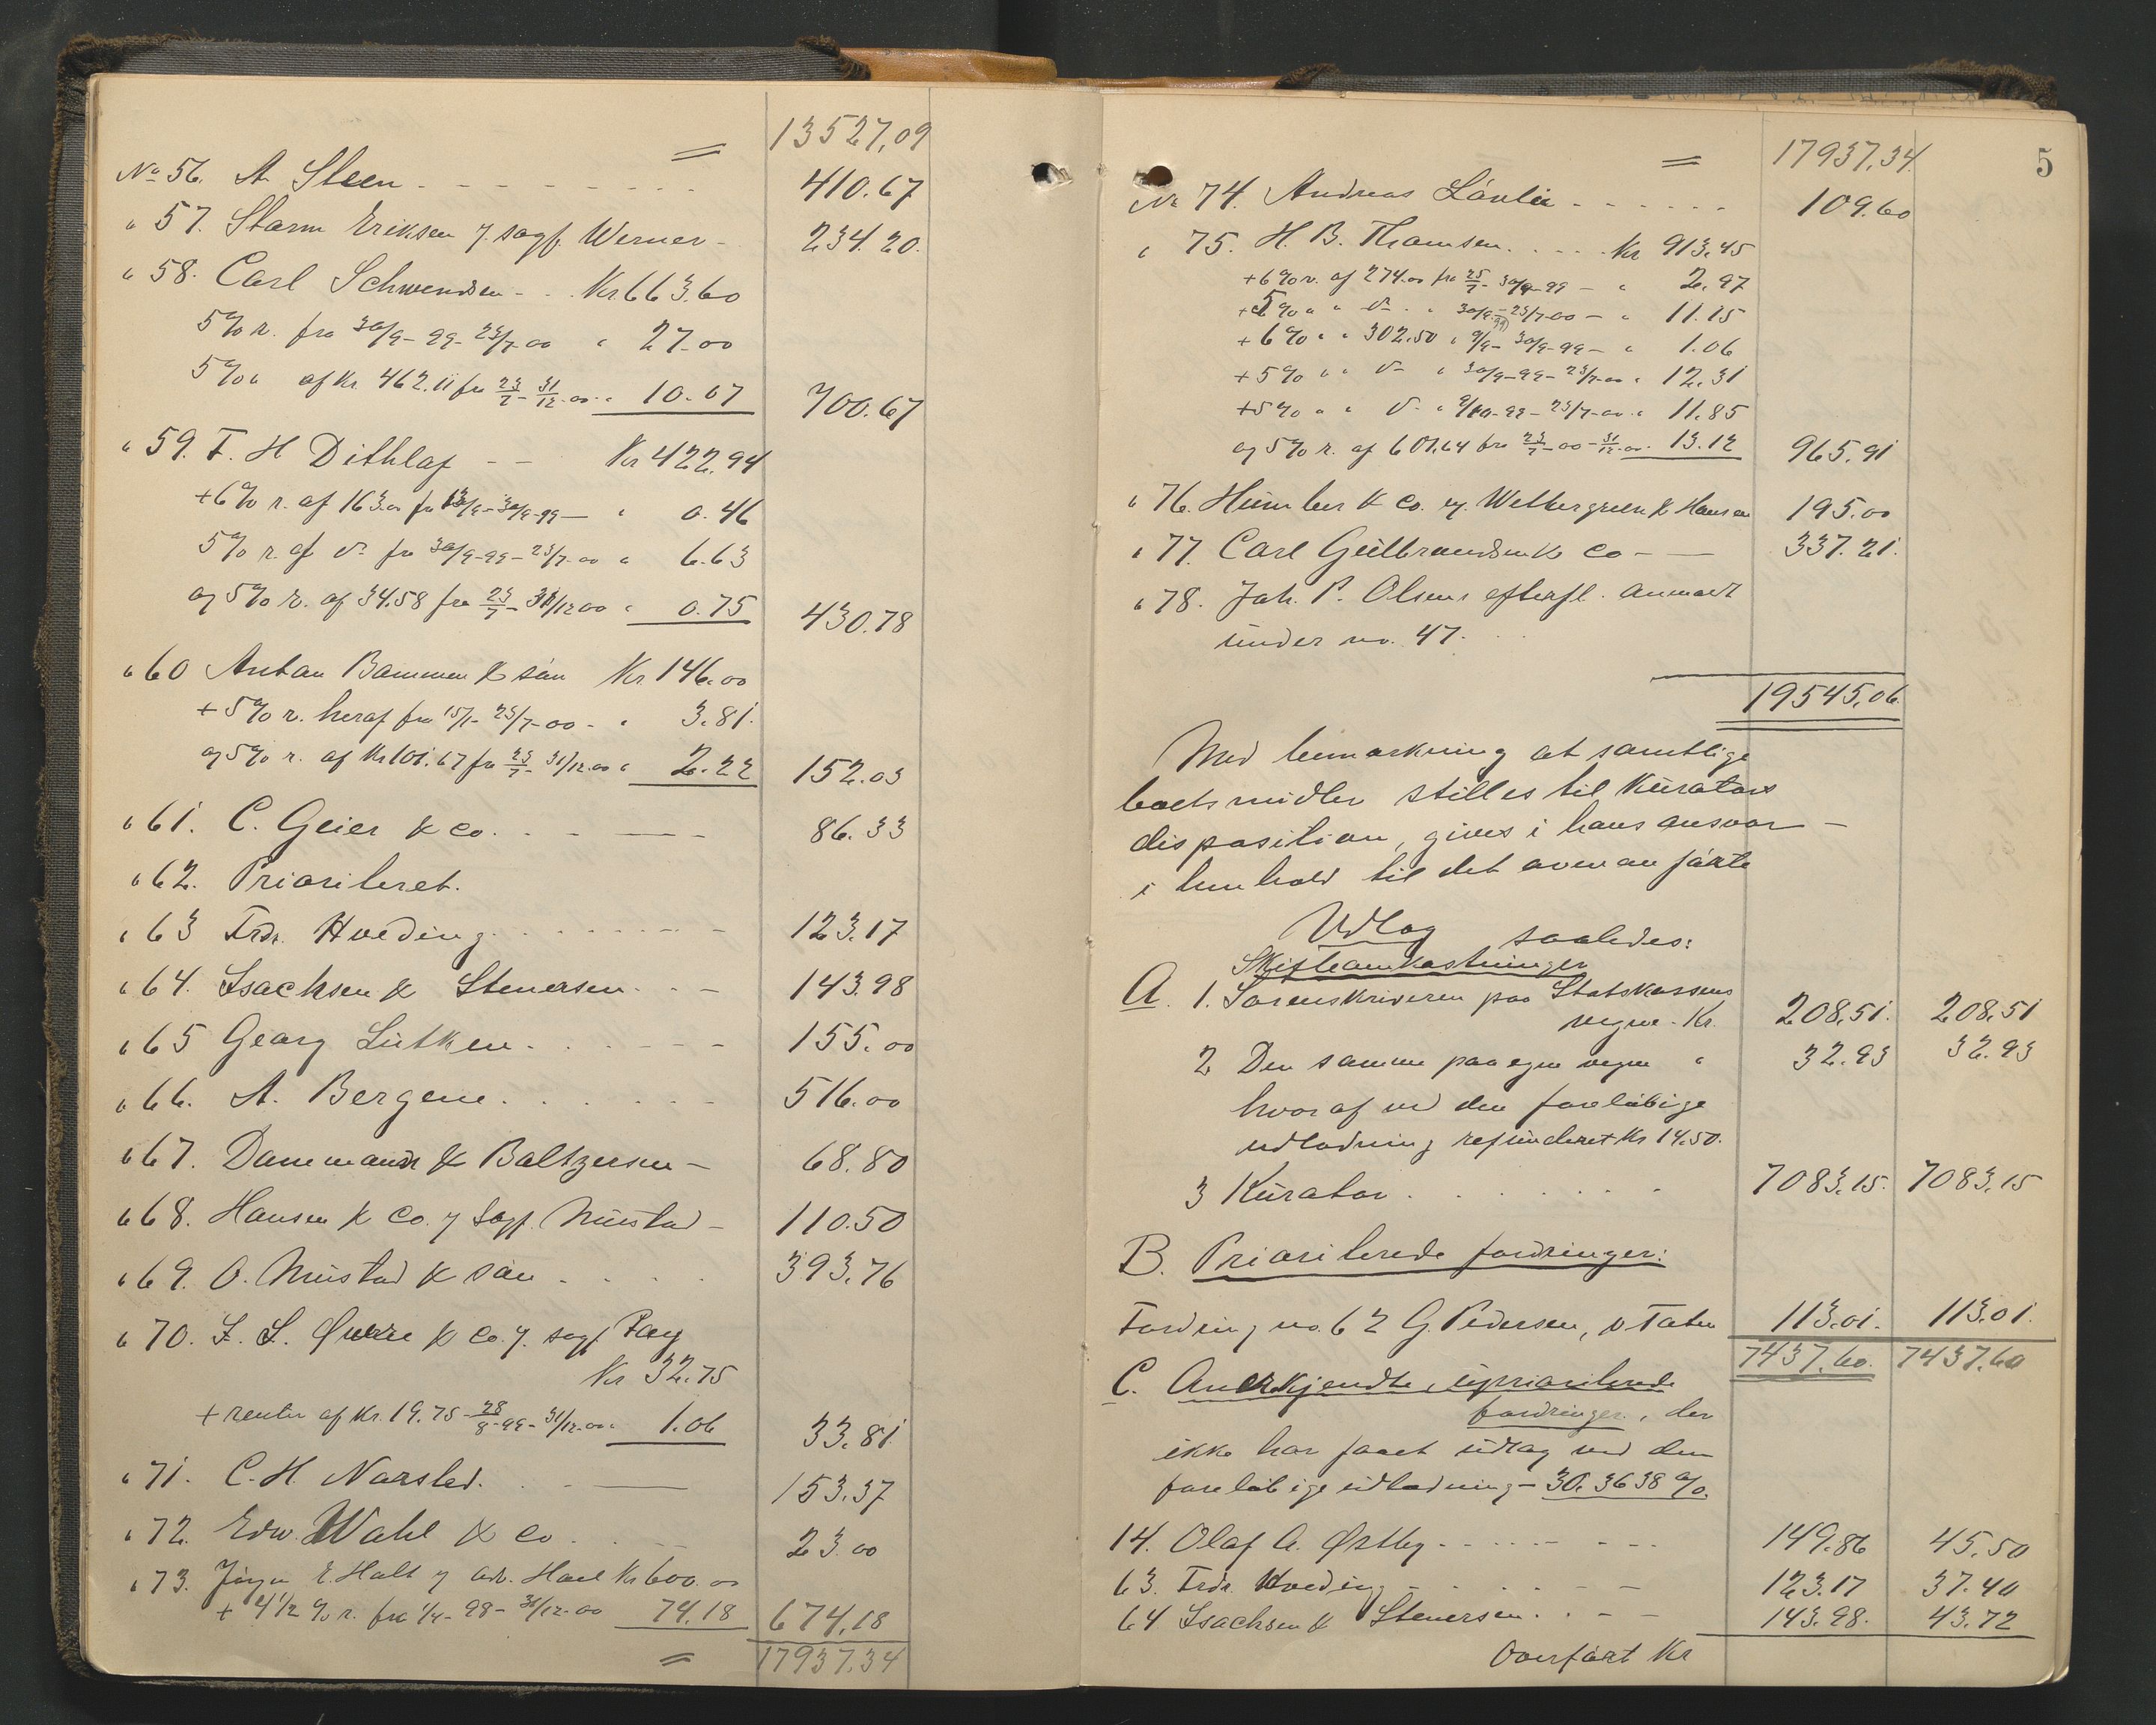 = 13527,09
No 56. A. Steen 410.67
" 57. Storm Eriksen v. sagf. Werner - 234.20
" 58. Carl Schwendsen - . Kr 663.60
5% r. fra 30/9-99-23/7-00 " 27.00
5% " af Kr. 462.11 fra 23/7-31/12-00 " 10.07 700.67
" 59. T. H Dithlaf - - Kr 422.94
+ 6% r. af 163.00 fra 13/9-30/9-99 - " 0.46
5% r. af do fra 30/9-99-23/7-00 " 6.63
og 5% r. af 34.58 fra 23/7-31/12 00 " 0.75 430.78
" 60 Anton Bammen & søn Kr. 146.00
+ 5% r. heraf fra 15/1-23/7-00 - " 3.81
og 5% r. af Kr 101.67 fra 23/7-31/12.00 " 2.22 152.03
" 61. C. Geier & Co. 86.33
" 62. Prioriteret.
" 63 Frdr. Hveding 123.17
" 64. Isachsen & Stenersen 143.98
" 65 Georg Lütken 155.00
" 66. A. Bergene 516.00
" 67. Dammann & Baltzersen - 68.80
" 68. Hansen & Co. v. Sagf. Mustad - 110.50
" 69. O. Mustad & søn 393.76
" 70. L. L. Qverre & Co. v. sagf.
Kr 32.75
+ renter af Kr. 19.75 - 28/8-99-31/12-00 " 1.06 33.81
" 71. C. H. Norsted. 153.37
" 72. Edw. Wahl & Co 23.00
" 73. E. Holt v. adv. Kr 600.00
+ 4 1/2 % r. fra 1/4-98-31/12-00 74.18 674,18
= 17937.34
5
= 17937,34.
No 74. Andreas Løvlie 109.60
" 75. H. B. Thomsen. Kr 913.45
+ 6% r. af 274.00 fra 25/7-30/9-99 - " 2.97
+ 5% " " do " 30/9-99-23/7-00 - " 11.15
+ 6% " " 302.50 " 9/9-30/9-99 - " 1.06
+ 5% " " do " 30/9-99-23/7-00 " 12.31
+ 5% " " do " 9/10-99-23/7-00 " 11.85
og 5% r. af 601,64 fra 23/7-00-31/12-00 - 13.12 965.91
" 76. Humber & Co. v. Wettergreen & Hansen 195.00
" 77. Carl Gulbrandsen & Co - 337.21.
" 78. Joh. P. Olsens efterfl. anmært
under no. 47.
19545,06
Med bemærkning at samtlige
boets midler stilles til Kurators
disposition, gives i hans ansvar -
i henhold til det ovenanførte
Udlæg saaledes:
Skifteomkostninger
A. 1. Sorenskriveren paa Statskassens
vegne - Kr. 208,51. 208,51
2 Den samme paa egne vegne " 32.93 32.93
hvoraf ved den foreløbige
udlodning refunderet Kr 14.50.
3 Kurator 7083,15. 7083,15
B. Prioriterede fordringer:
Fordring no. 62 G. Pedersen, 113.01. 113.01.
7437,60. 7437,60
C. Anerkjendte, uprioriterede
fordringer, der
ikke har faaet udlæg ved den
foreløbige udlodning - 30.3638 %.
14. Olaf A. Østby 149.86 45.50
63. Frdr. Hveding 123.17 37.40
64 Isachsen & Stenersen 143.98. 43.72
Overført Kr